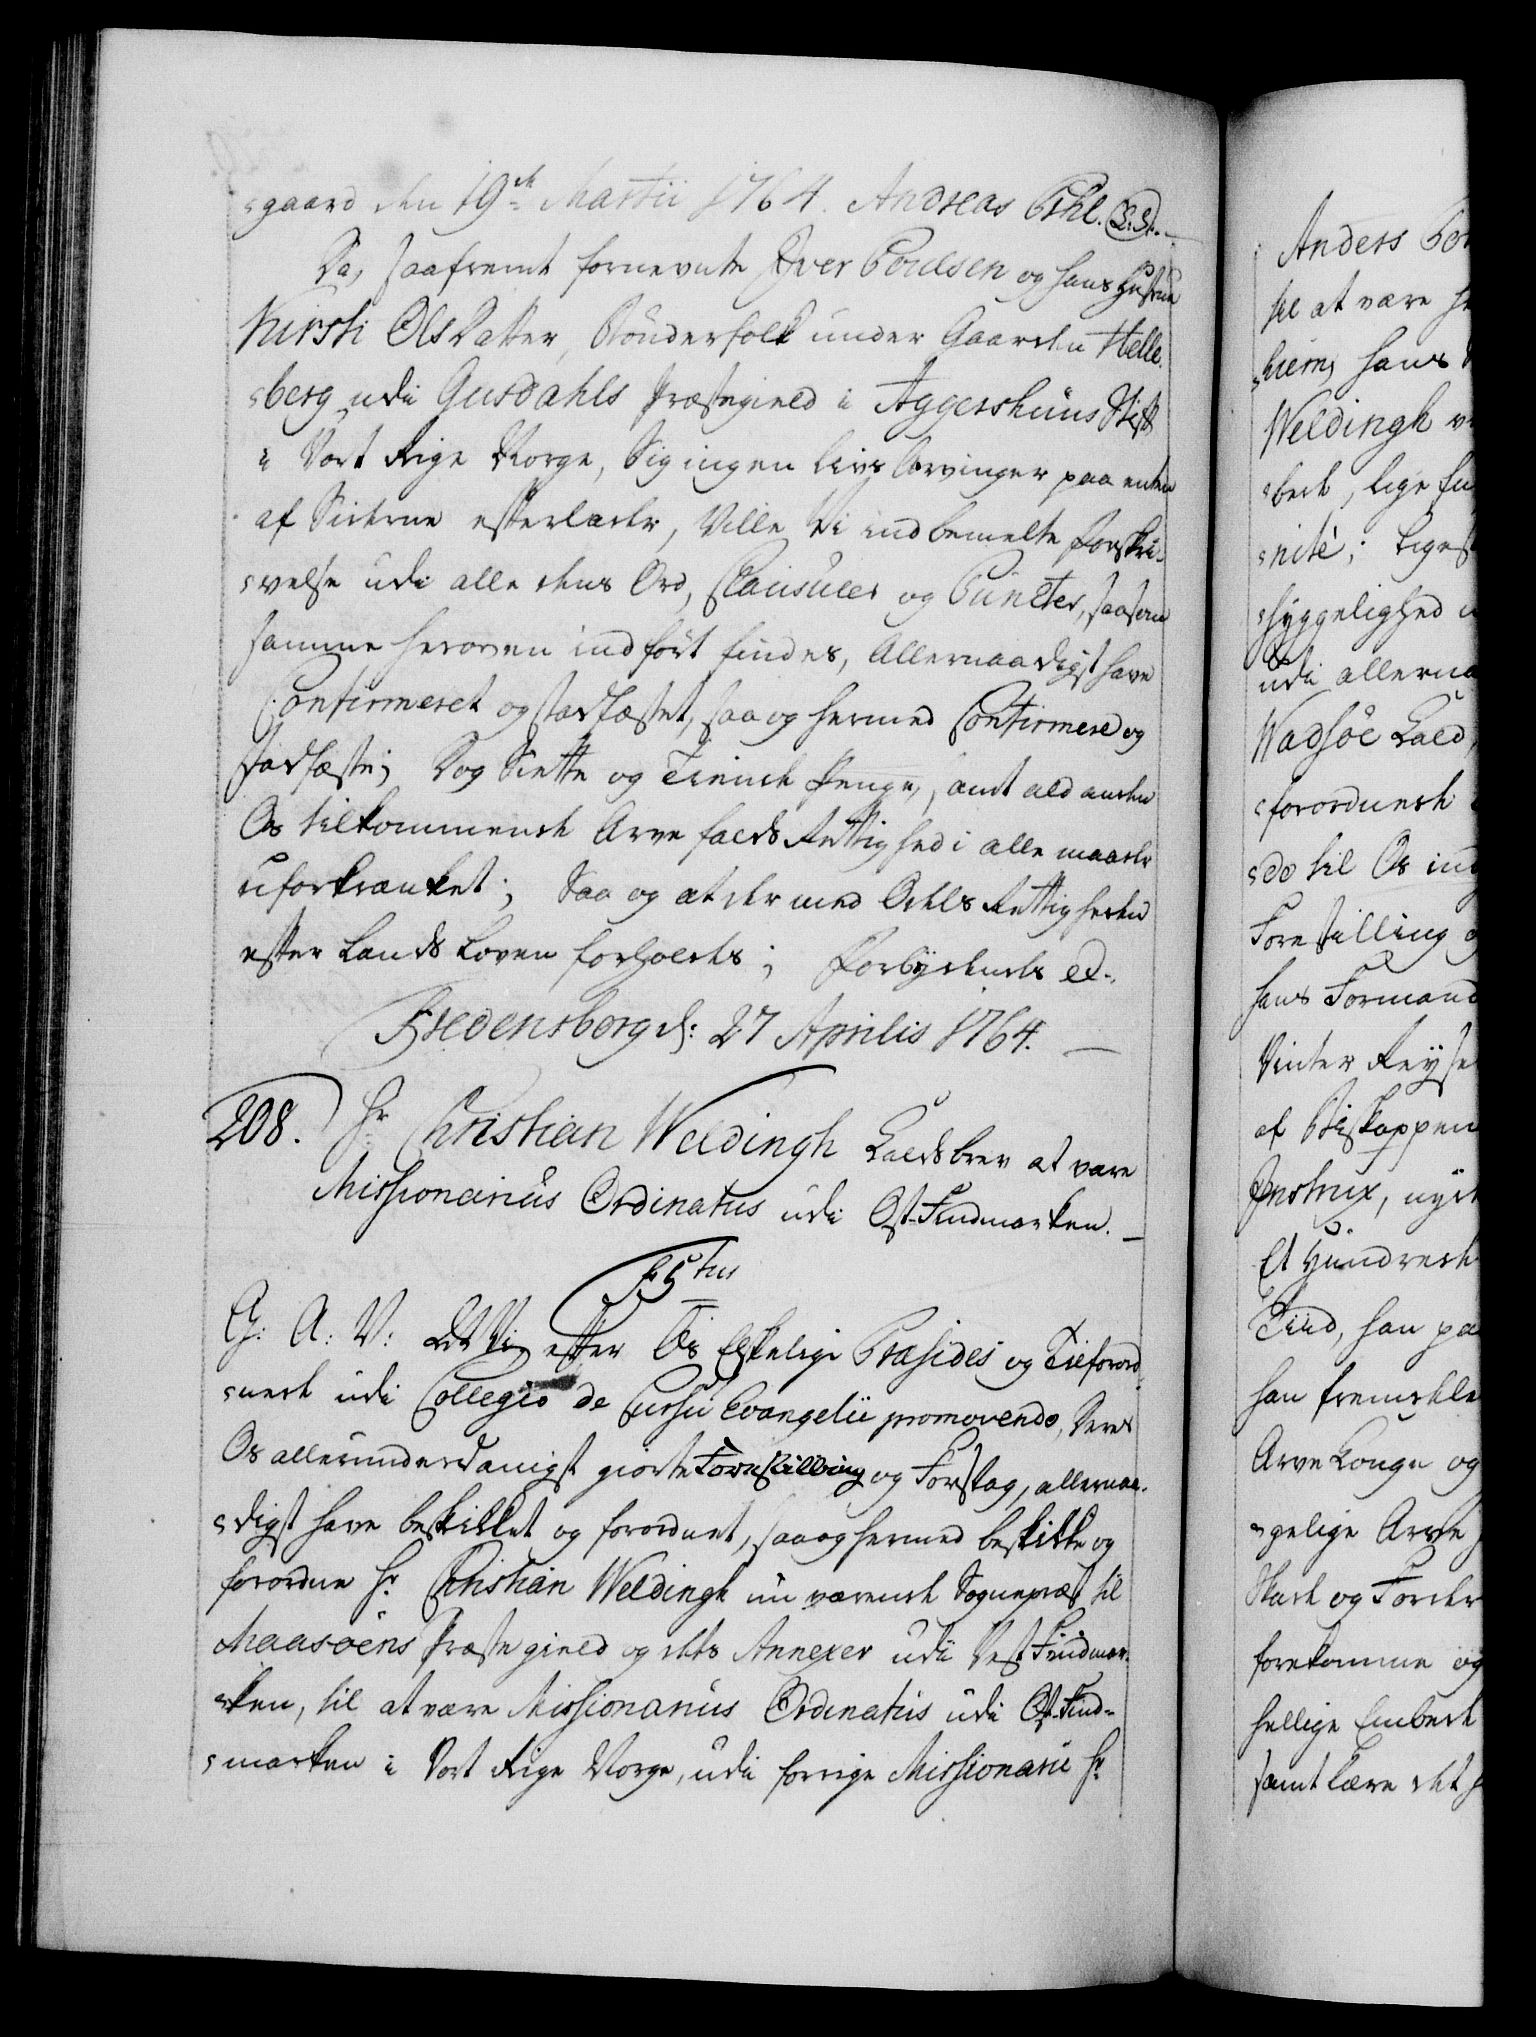 gaard den 19de Martii 1764. Andreas Pihl. (L.S.)
Da, saafremt fornevnte Iver Poulsen og hans Hustrue
Kirsti Ols Datter, Bönderfolk under Gaarden Helle-
berg udi Gusdahls Præstegield i Aggershuus Stift
i Vort Rige Norge, Sig ingen Livs Arvinger paa enten
af Siderne efterlader, Ville Vi indbemelte Forskri-
velse udi alle dens Ord, Clausuler og Puncter, saasom
samme heroven indfört findes, Allernaadigst have
Confirmeret og stadfæstet, saa og hermed Confirmere og
stadfæste; Dog Siette og Tiende Penge, samt ald anden
Os tilkommende Arve falds Rettighed i alle maader
uforkrænket; Saa og at der med Odels Rettigheden
efter Lands Loven forholdes; Forbydendes etc.
Fredensborg d: 27 Aprilis 1764.
208. Hr Christian Weldingh Kaldsbrev at være
Missionarius Ordinatus udi Ost-Findmarken.
F5tus
G: A: V: At Vi efter Os Elskelige Præsides og Tilforord-
nede udi Collegio de Cursu Evangelii promovendo, deres
Os allerunderdanigst giorte Forestilling og Forslag, allernaa-
digst have beskikket og forordnet, saa og hermed beskikke og
forordne Hr Christian Weldingh nu værende Sognepræst til
Maasöens Præstegield og dets Annexer udi Vest Findmar-
ken, til at være Missionarius Ordinatus udi Ost-Find-
marken i Vort Rige Norge, udi forrige Missionarii Hr
Anders
til at være
hiem, hans
Weldingh
bede, lige
nité; liges
hyggelighed
udi allerna
Wadsöe Kald,
forordnede
do til Os ind
Forestilling
hans Formand
Vinter Reyse
af Biskoppen
Instrux, nyde
Et Hundrede
Tiid, han
han fremdele
Arve Konge og
gelige Arve
Skade og Forder
forekomme og
hellige Embede
samt lære det